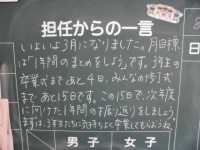 担任からの一言
いよいよ3月になりました。月目標
は「1年間のまとめをしよう。」です。3年生の
卒業式まであと4日。みんなの修了式
まであと15日です。この15日で、次年度
に向けた1年間の振り返りをしましょう。
まずは、3年生たちに気持ちよく卒業してもらおうね。
男子
女子
日